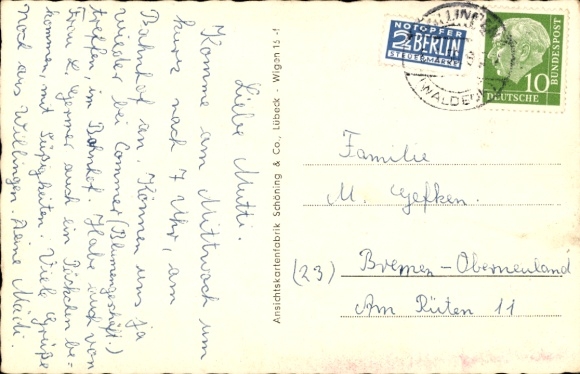 Liebe Mutti.
Komme am Mittwoch um
kurz nach 7 Uhr, am
Bahnhof an. Können uns ja
wieder bei Commer (Blumengeschäft.)
treffen, im Bahnhof. Habe auch von
Frau L. Germer auch ein Päckchen be-
kommen, mit Süßigkeiten. Viele Grüße
noch aus Willingen. Deine Mädi.
Ansichtskartenfabrik Schöning & Co., Lübeck - Wigen 15 -f
NOTOPFER
2 BERLIN
STEUERMARKE
WILLINGEN
(WALDECK)
10
DEUTSCHE
BUNDESPOST
Familie
M. Gefken.
(23) Bremen-Oberneuland
Am Rüten 11